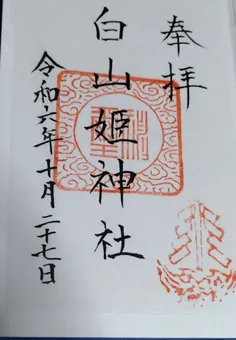 奉拝
白山姫神社
令和六年十月二十七日